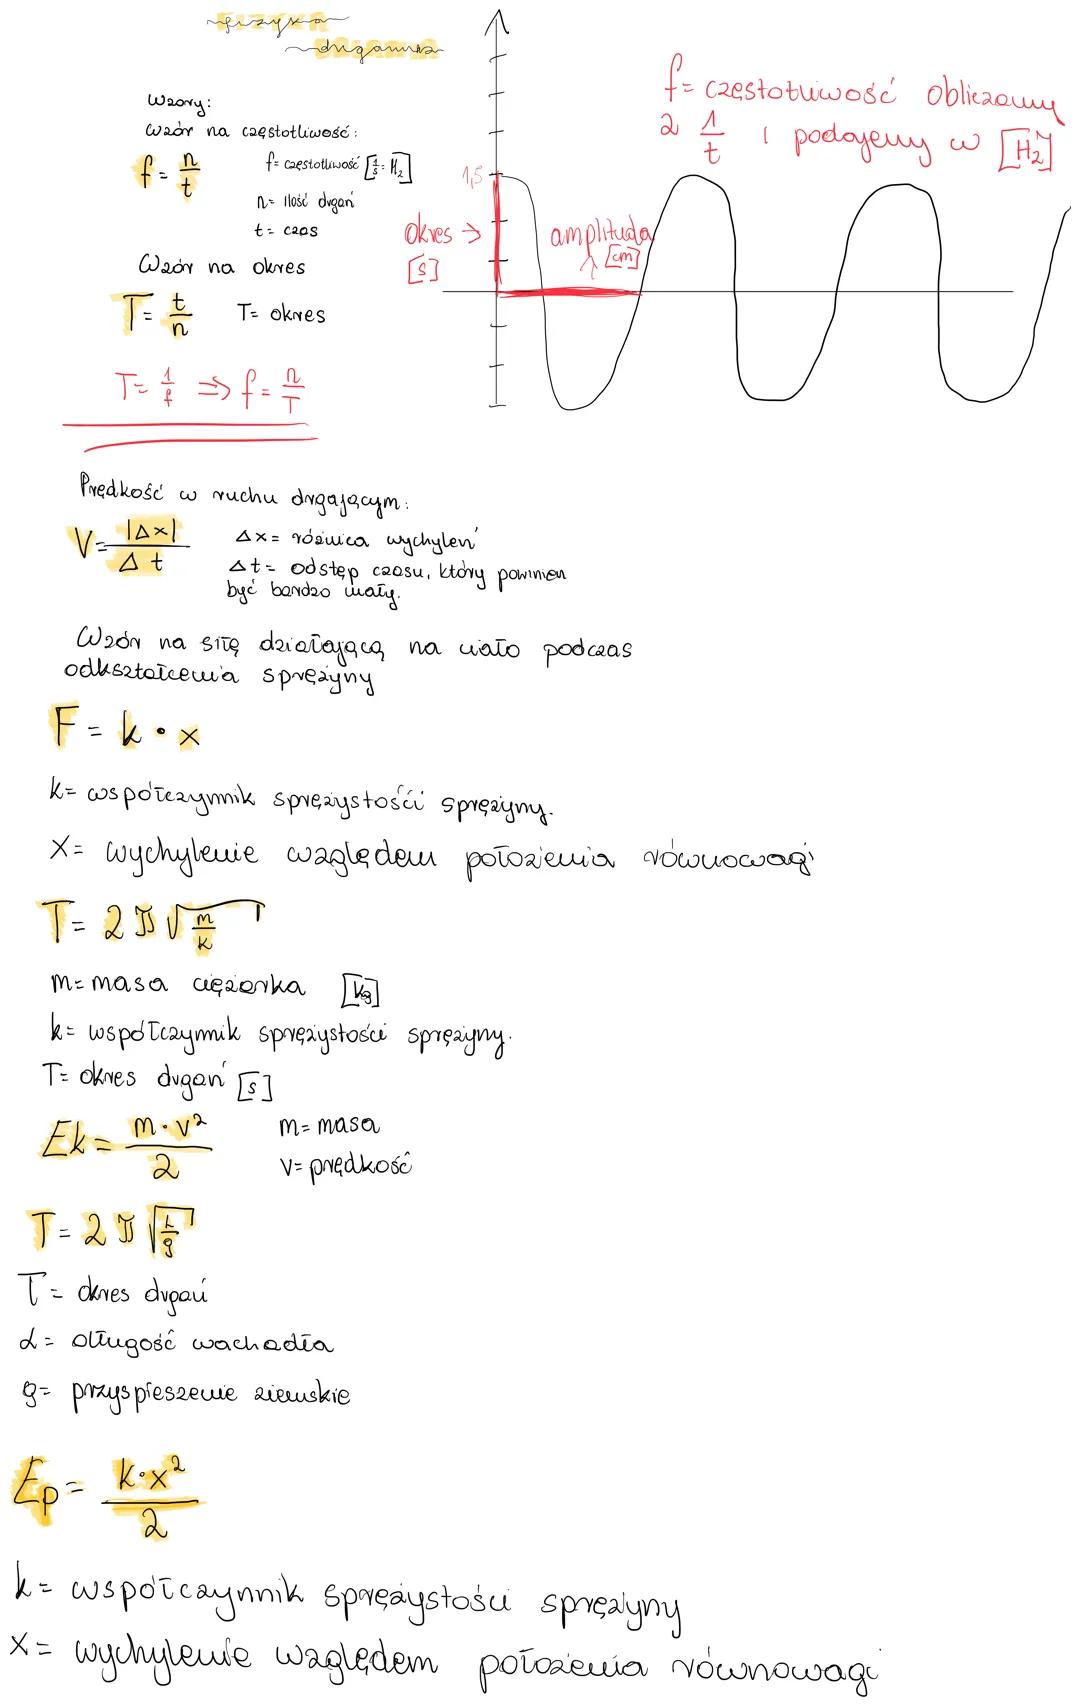 fizyka
drgania
Wzory:
Wzór na częstotliwość:
f = n/t
f = częstotliwość [1/s = Hz]
n = ilość drgań
t = czas
Wzór na okres
T = t/n
T = okres
T = 1/f ⇒ f = n/T
f = częstotliwość obliczamy
z 1/t i podajemy w [Hz]
1,5
okres →
[s]
amplituda
[cm]
Prędkość w ruchu drgającym:
V = |Δx|/Δt
Δx = różnica wychyleń
Δt = odstęp czasu, który powinien
być bardzo mały.
Wzór na siłę działającą na ciało podczas
odkształcenia sprężyny
F = k • x
k = współczynnik sprężystości sprężyny.
x = wychylenie względem położenia równowagi
T = 2π√(m/k)
m = masa ciężarka [kg]
k = współczynnik sprężystości sprężyny.
T = okres drgań [s]
Ek = m·v²/2
m = masa
v = prędkość
T = 2π√(L/g)
T = okres drgań
L = długość wachadła
g = przyspieszenie ziemskie
Ep = k·x²/2
k = współczynnik sprężystości sprężyny
x = wychylenie względem położenia równowagi